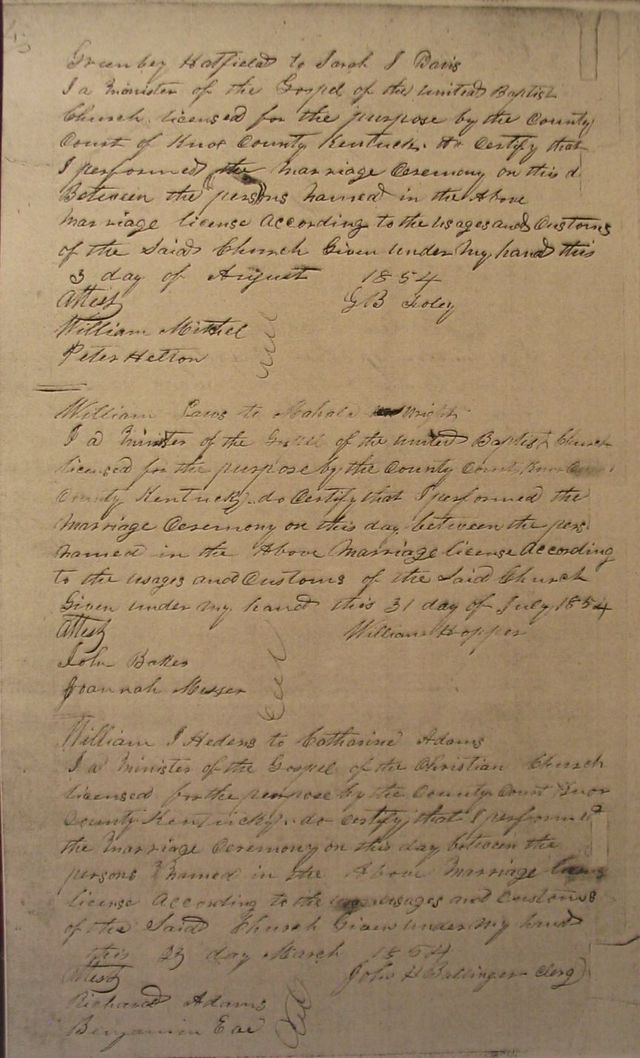 Greenbey Hatfield to Sarah J Davis
I a Minister of the Gospel of the united Baptist
Church licensed for the purpose by the County
Court of Knox County Kentucky do Certify that
I performed the Marriage Ceremony on this d
Between the persons Named in the Above
Marriage license According to the usages and Customs
of the Said Church Given under My hand this
3 day of August 1854
Attest G B Foley
William Mitchel
Peter Helton
William Laws to Mahala Wright
I a Minister of the Gospel of the united Baptist Church
licensed for the purpose by the County County Knox
County Kentucky do Certify that I performed the
Marriage Ceremony on this day between the pers
Named in the Above Marriage license According
to the usages and Customs of the Said Church
Given under My hand this 31 day of July 1854
Attest William Hopper
John Baker
Joannah Messer
William J Hedens to Catharine Adams
I a Minister of the Gospel of the Christian Church
licensed for the purpose by the County Court Knox
County Kentucky do Certify that I performed
the Marriage Ceremony on this day between the
persons Named in the Above Marriage
license According to the usages and Customs
of the Said Church Given under My hand
this 23 day March 1854
Attest John H Ballinger Clerg
Richard Adams
Benjamin